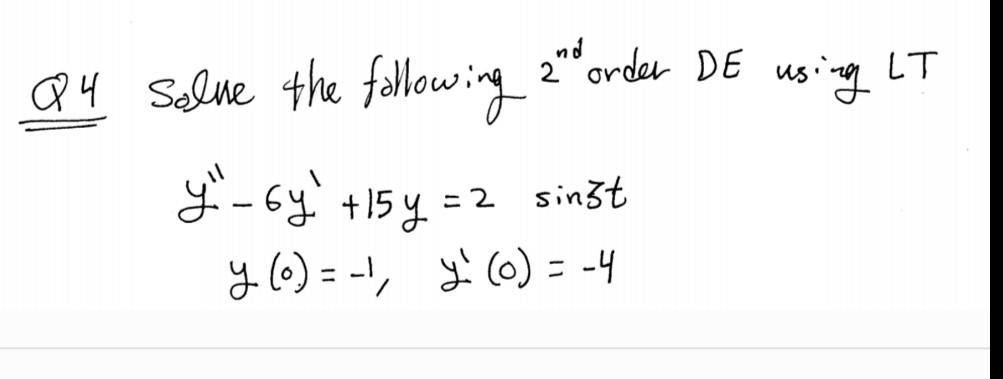 Q4 Solve the following 2nd order DE using LT
y'' - 6y' + 15y = 2 sin3t
y(0) = -1, y'(0) = -4